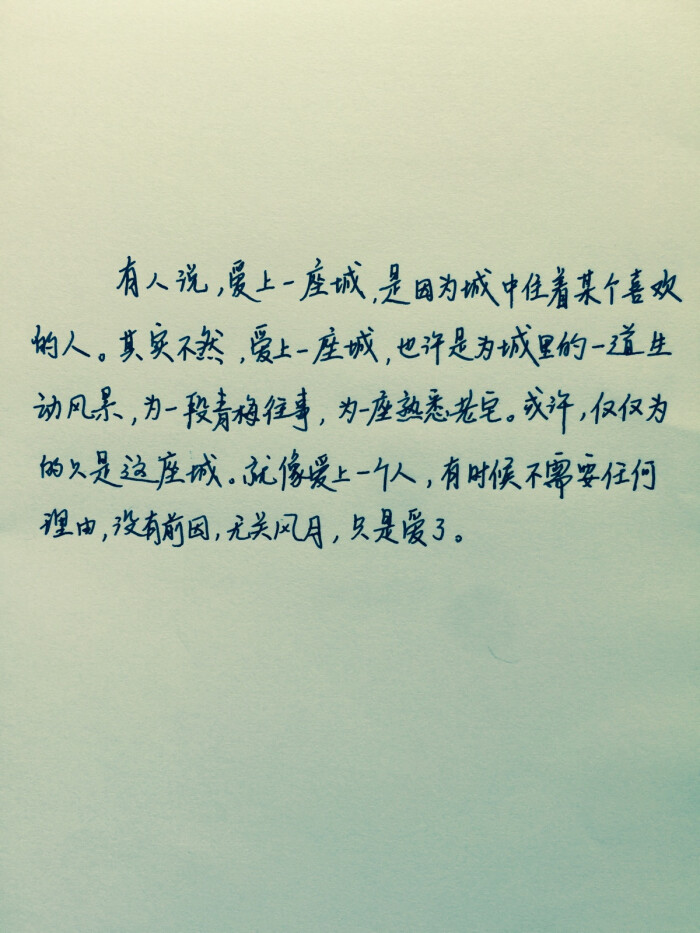 有人说,爱上一座城,是因为城中住着某个喜欢
的人。其实不然,爱上一座城,也许是为城里的一道生
动风景,为一段青梅往事,为一座熟悉老宅。或许,仅仅为
的只是这座城。就像爱上一个人,有时候不需要任何
理由,没有前因,无关风月,只是爱了。